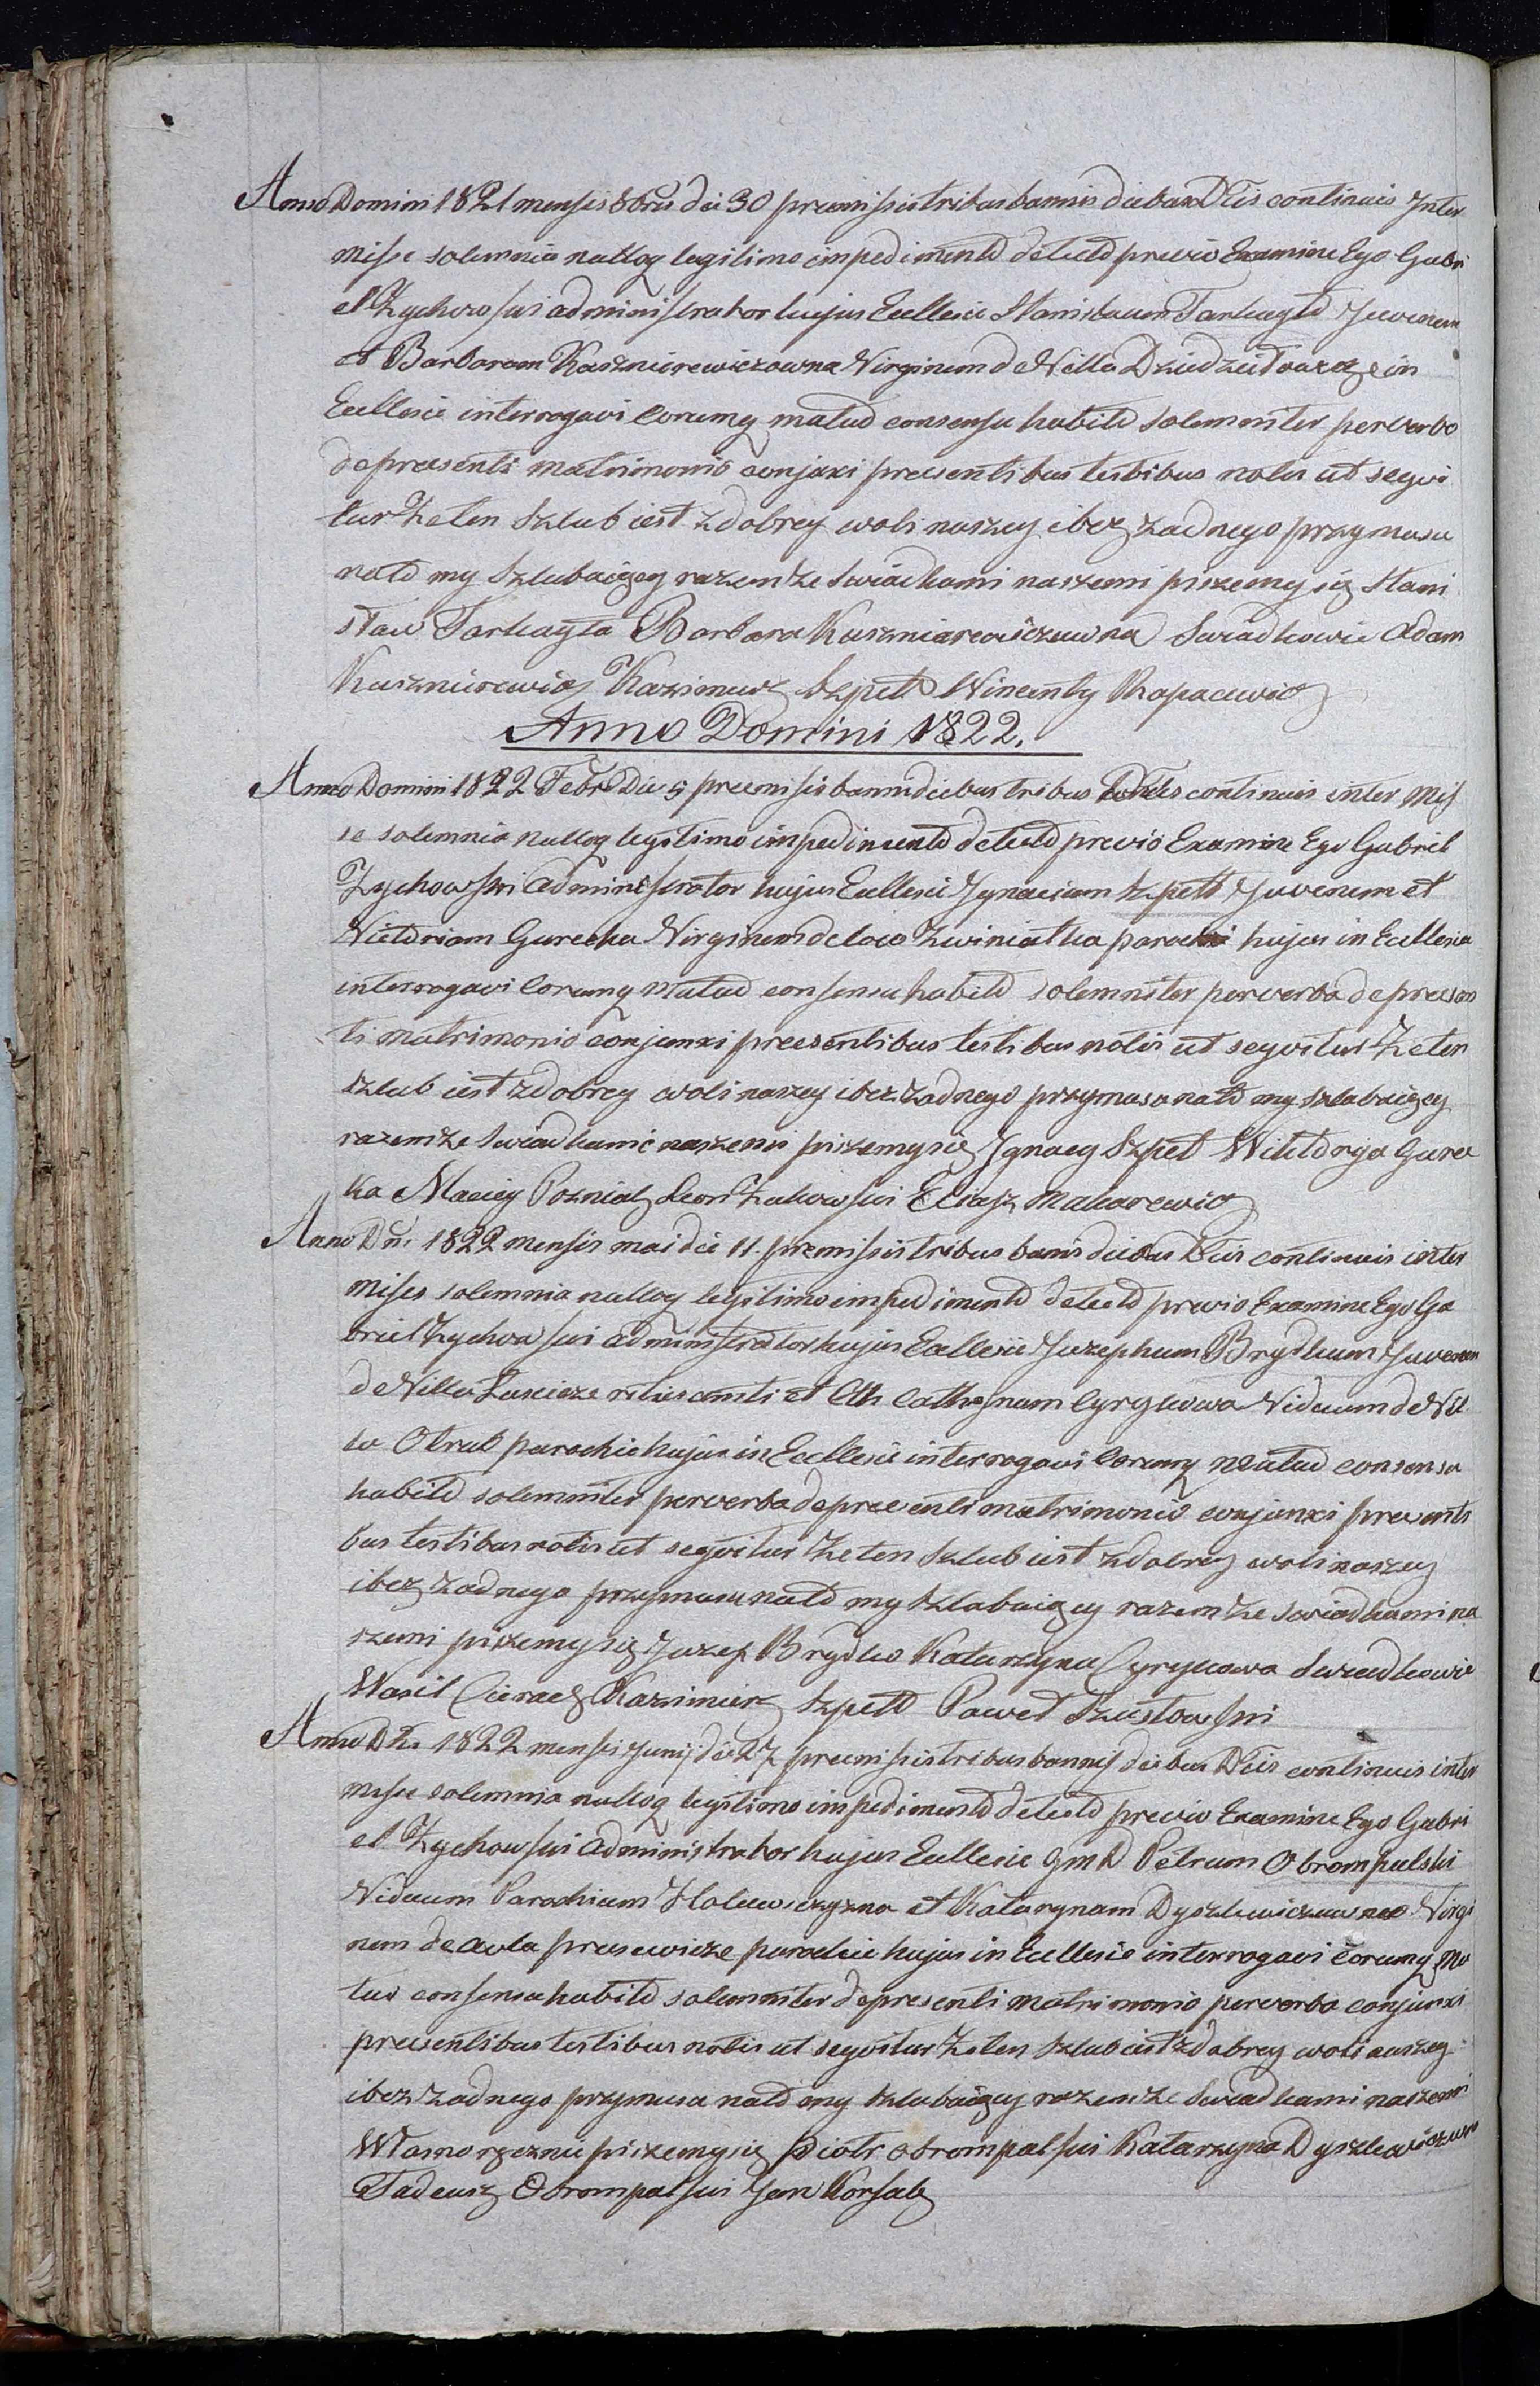 Anno Domini 1821 mensis 8bris die 30 premissis tribus bannis diebus Dtis continuis Inter
misse solemnia nulloq legitimo impedimento detecto previo Examine Ego Gabri
el Zychowski administrator hujus Ecclesie Stanislaum Tarhayło Juvenem
et Barbaram Kaszniurewiczowna Virginem de Villa in
Ecclesie interrogavi Corumq mutuo consensu habito solemniter per verba
de presenti matrimonio conjuxi presentibus testibus notis ut segvi
tur Że ten Szlub iest z dobrey woli naszey i bez żadnego przymusu
na to my Szlubuięcy razem ze swiadkami naszemi piszemy się Stani
sław Tarhayła Barbara Kuszniarewiczuwna Swiadkowie Adam
Kuszniurewicz Kazimierz Szpetd Wincenty Rapacewicz
Anno Domini 1822.
Anno Domini 1822 Febr Die 5 premissis banni diebus tribus continuis inter Miss
se solemnia nulloq legitimo impedimento detecto previo Examine Ego Gabriel
Zychowski Administrator hujus Ecclesie Ignacium Szpett Juvenem et
Victoriam Gurecka Virginem de loco Zwiniatka parochi hujus in Ecclesia
interrogavi Corumq Mutuo consensu habito solemniter per verba de presen
ti matrimonio conjunxi presentibus testibus notis ut segvitur Że ten
szlub iest z dobrey woli naszey i bez żadnego przymusu na to my szlubuięcy
razem ze swiadkami naszemi piszemy się Ignacy Szpet Wiktorya Gurec
ka Maciey Pozniak Leon Żukowski Eliasz Makarewicz
Anno Dni 1822 mensis mai die 11. premissis tribus banis diebus Dtis continuis inter
misse solemnia nulloq legitimo impedimento detecto previo Examine Ego Ga
briel Zychowski administrator hujus Ecclesie Juzephum Brydkum Juvenem
de Villa ritus et Cth Catharynam Cyrykowa Viduum de Vil
la Otrub parochie hujus in Ecclesie interrogavi Corumq Mutuo consensu
habito solemniter per verba de presenti matrimonio conjunxi presenti
bus testibus notis ut segvitur Że ten Szlub iest z dobrey woli naszey
i bez żadnego przymusu na to my szlubuięcy razem ze swiadkami na
szemi piszemy się Juzef Brydko Katarzyna Cyrykowa Swiadkowie
Wasil Kazimierz Szpetd Paweł Szustowski
Anno Dn. 1822 mensis Junij die 27 premissis tribus bannis diebus Dtis continuis inter
misse solemnia nulloq legitimo impedimento detecto previo Examine Ego Gabri
el Zychowski Administrator hujus Ecclesie GmD Petrum Obrompalski
Viduum Parochium et Katarynam Dyszlewiczuwna Virgi
nem de aula prusewicze parochie hujus in Ecclesie interrogavi Corumq Mu
tuo consensu habito solemniter de presenti matrimonio per verba conjunxi
presentibus testibus notis ut segvitur Że ten szlub iest z dobrey woli naszey
i bez żadnego przymusu na to my szlubuięcy razem ze swiadkami naszemi
Własnoręcznie piszemy się Piotr Obrompalski Katarzyna Dyszlewiczuwna
Tadeusz Obrompalski Jan Korsak